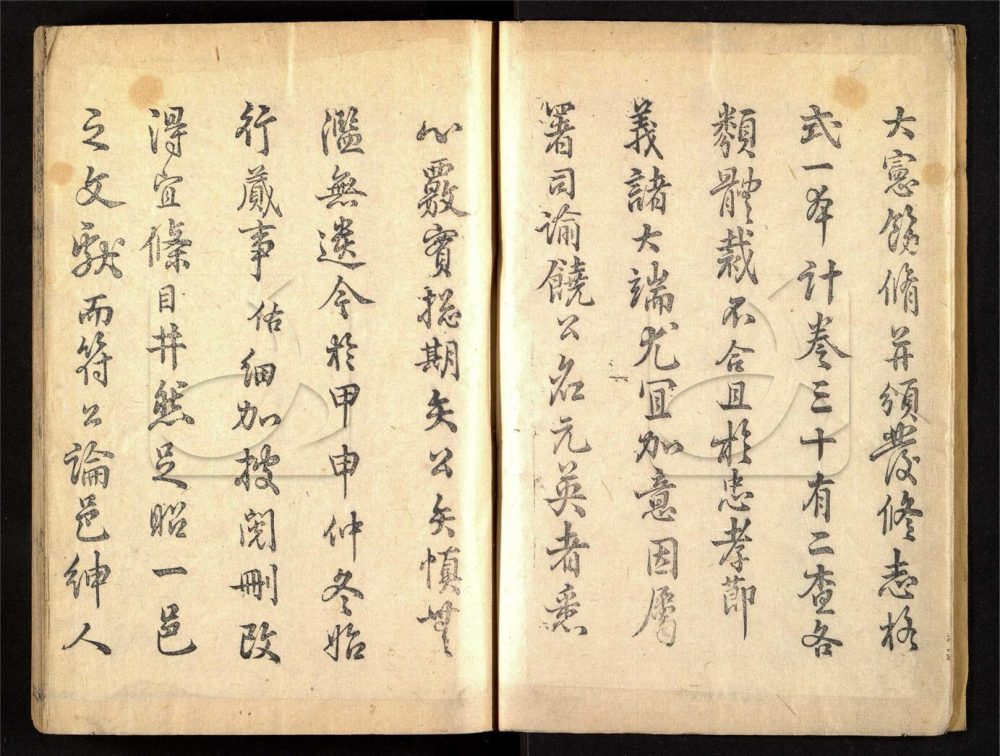 大憲飭脩并頒發修志格
式一本計卷三十有二查各
類體裁不合且於忠孝節
義諸大端尤宜加意因屬
署司諭饒公名元英者悉
心覈實搃期矢公矢慎無
濫無遺今於甲申仲冬始
行蕆事佑細加披閱刪改
得宜條目井然足昭一邑
之文獻而符公論邑紳人